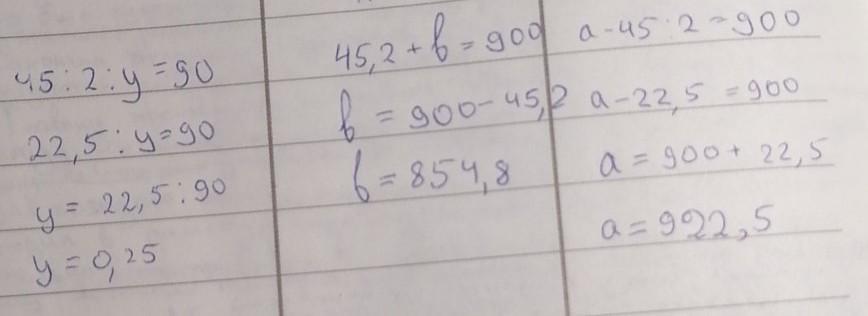 45:2:y=90
22,5:y=90
y= 22,5:90
y=0,25
45,2+b=900
b=900-45,2
b=854,8
a-45:2=900
a-22,5=900
a=900+22,5
a=922,5